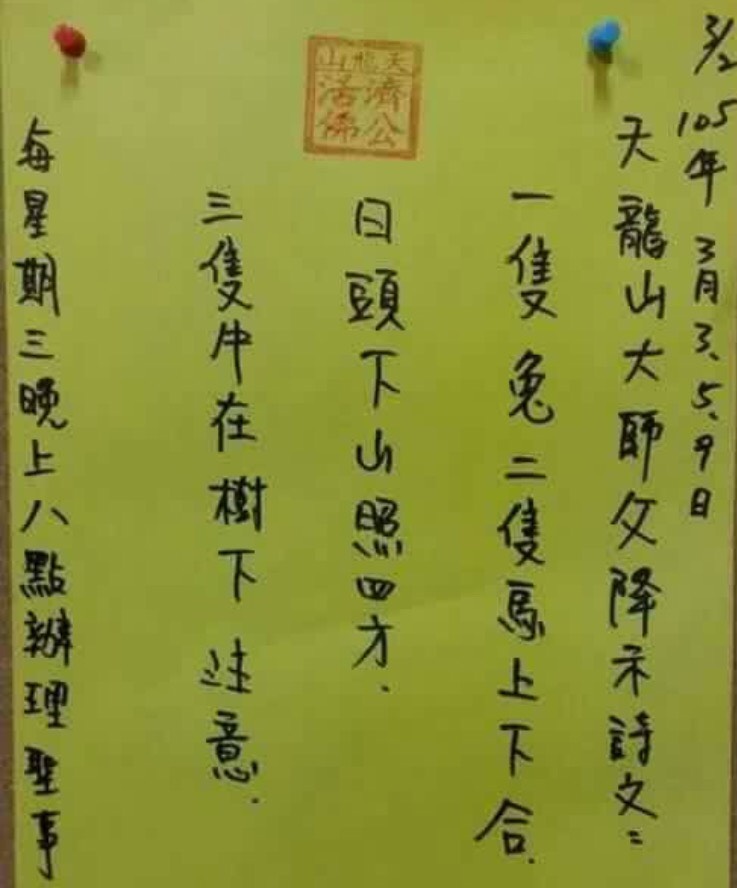 3/2
105年3月3、5、9日
天龍山大師父降示詩文：
一隻兔二隻馬上下合.
日頭下山照四方.
三隻牛在樹下 注意.
每星期三晚上八點辦理聖事
天龍山
濟公
活佛